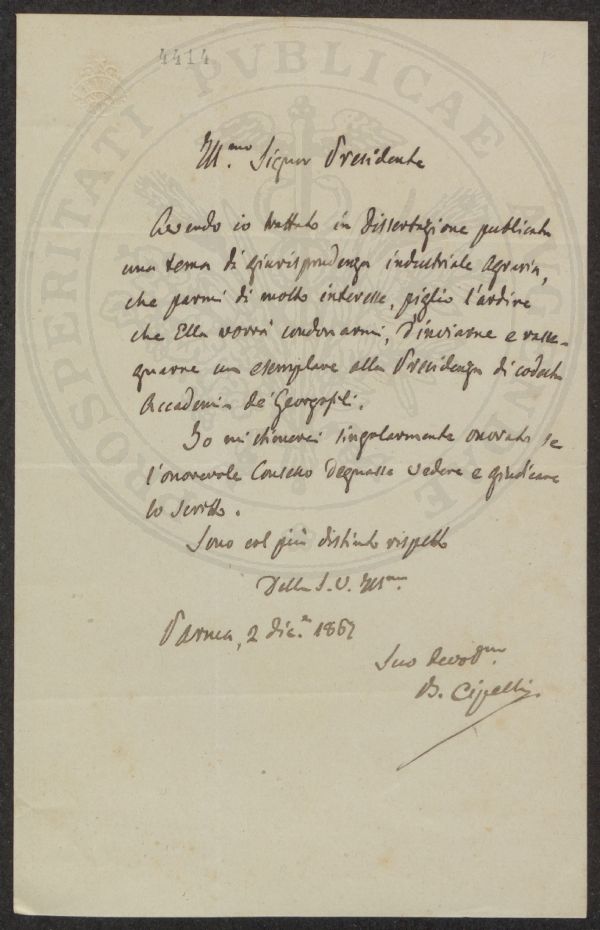 4414
PROSPERITATI PVBLICAE AVGENDAE
Ill.mo Signor Presidente
Avendo io trattato in Dissertazione publicata
una tema di giurisprudenza industriale agraria,
che parmi di molto interesse, piglio l'ardire
che Ella vorrà condonarmi, d'inviarne e rasse-
gnarne un esemplare alla Presidenza di codesta
Accademia de' Georgofili.
Io mi stimerei singolarmente onorato se
l'onorevole Consesso degnasse vedere e giudicare
lo scritto.
Sono col più distinto rispetto
Della S. V. Ill.ma
Parma, 2 dic.e 1867
Suo devot.mo
B. Cipelli